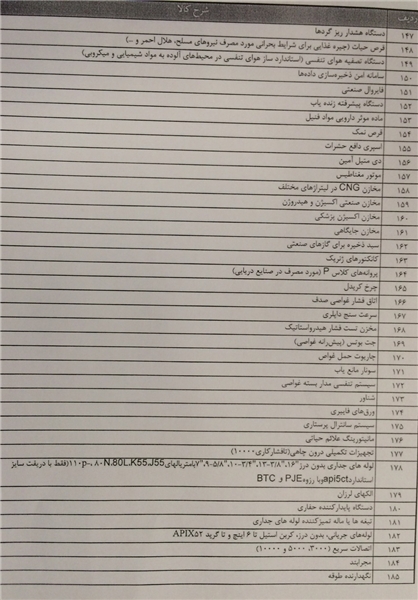 ردیف شرح کالا
۱۴۷ دستگاه هشدار ریز گردها
۱۴۸ قرص حیات (جیره غذایی برای شرایط بحرانی مورد مصرف نیروهای مسلح، هلال احمر و ...)
۱۴۹ دستگاه تصفیه هوای تنفسی (استاندارد ساز هوای تنفسی در محیط‌های آلوده به مواد شیمیایی و میکروبی)
۱۵۰ سامانه امن ذخیره‌سازی داده‌ها
۱۵۱ فایروال صنعتی
۱۵۲ دستگاه پیشرفته زنده یاب
۱۵۳ ماده موثر دارویی مواد فنیل
۱۵۴ قرص نمک
۱۵۵ اسپری دافع حشرات
۱۵۶ دی متیل آمین
۱۵۷ موتور مغناطیس
۱۵۸ مخازن CNG در لیتراژهای مختلف
۱۵۹ مخازن صنعتی اکسیژن و هیدروژن
۱۶۰ مخازن اکسیژن پزشکی
۱۶۱ مخازن جایگاهی
۱۶۲ سبد ذخیره برای گازهای صنعتی
۱۶۳ کانکتورهای ژنریک
۱۶۴ پروانه‌های کلاس P (مورد مصرف در صنایع دریایی)
۱۶۵ چرخ کریدل
۱۶۶ اتاق فشار غواصی صدف
۱۶۷ سرعت سنج داپلری
۱۶۸ مخزن تست فشار هیدرواستاتیک
۱۶۹ جت بوتس (پیش‌رانه غواصی)
۱۷۰ چارپوت حمل غواص
۱۷۱ سونار مانع یاب
۱۷۲ سیستم تنفسی مدار بسته غواصی
۱۷۳ شناور
۱۷۴ ورق‌های فایبری
۱۷۵ سیستم سانترال پرستاری
۱۷۶ مانیتورینگ علائم حیاتی
۱۷۷ تجهیزات تکمیلی درون چاهی(تافشارکاری۱۰۰۰۰)
۱۷۸ لوله های جداری بدون درز"۱۶،"۱۳-۳/۸،"۱۰-۳/۴،"۹-۵/۸،"۷بامتریالهای۱۱۰p-،۸۰N،80L،K55،J55(فقط با دریافت سایز
استانداردapi5ctوبا رزوهPJE و BTC
۱۷۹ الکهای لرزان
۱۸۰ دستگاه پایدارکننده حفاری
۱۸۱ تیغه ها یا مانه تمیزکننده لوله های جداری
۱۸۲ لوله‌های جریانی، بدون درز، کربن استیل تا ۶ اینچ و تا گرید APIX۵۲
۱۸۳ اتصالات سریع (۳۰۰۰، ۵۰۰۰ و ۱۰۰۰۰)
۱۸۴ مجرابند
۱۸۵ نگهدارنده طوقه